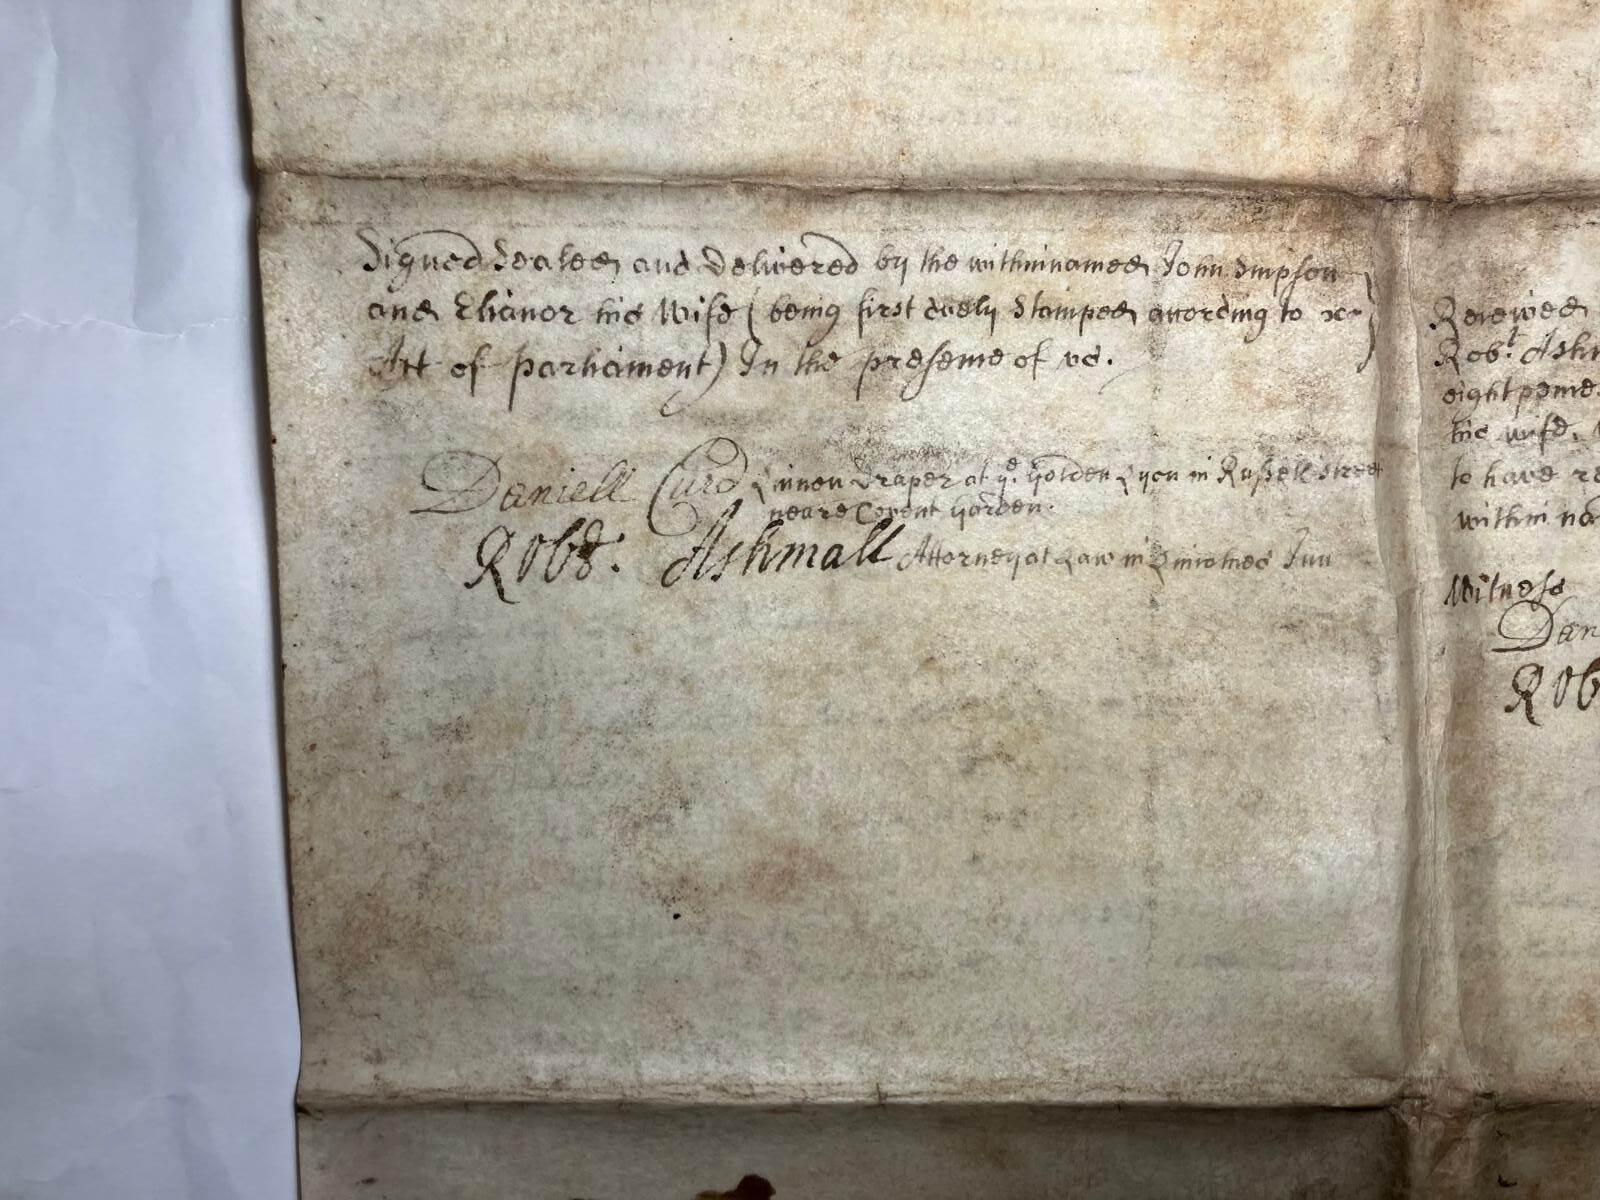 Signed Sealed and Delivered by the withinnamed John Simpson
and Elianor his Wife (being first duely Stamped according to
Act of Parliament) In the presence of us.
Daniell Curd Linnen Draper at ye. Golden Lyon in Russell Street
neare Covent Garden.
Robt. Ashmall Attorney at Law in Lincolnes Inn
Received
Robt. Ashm
eight pence
his wife,
to have re
within na
Witness
Dan
Rob